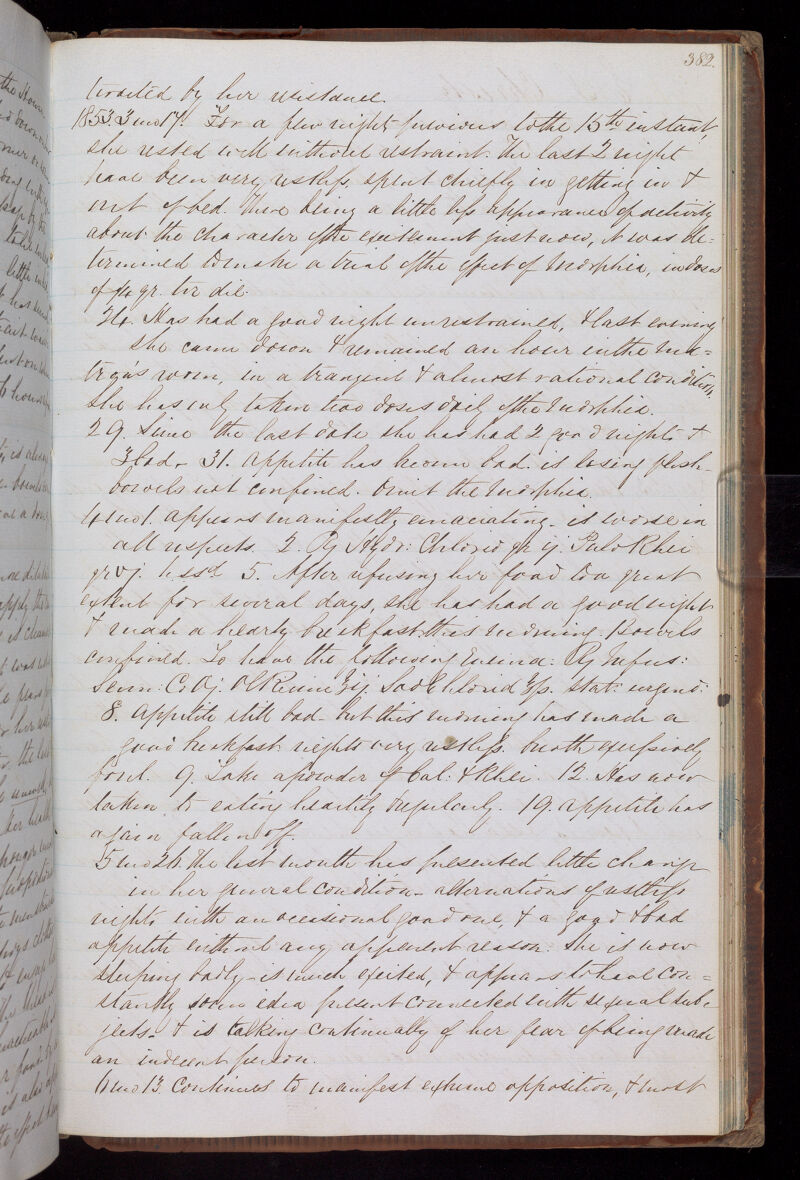 382.
by her resistance.
1853. 3 mo 17. For a few nights previous to the 15th instant,
she rested well without restraint. The last 2 night
have been very restless, spent chiefly in getting in &
out of bed. There being a little less appearance of activity
about the character of the excitement just now, it was de-
termined to make a trial of the effect of Morphia, in doses
of gr. ter die.
24. Has had a good night unrestrained, & last evening
she came down & remained an hour in the Ma-
tron's room, in a tranquil & almost rational condition,
She has only taken two doses daily of the Morphia.
29. Since the last date she has had 2 good nights &
3 bad. 31. Appetite has become bad. is losing flesh-
bowels not confined. Omit the Morphia.
4 mo 1. Appears manifestly emaciating. is worse in
all respects. 2. Rx Hydr: Chlorid gr ij Pulv Rhei
gr vj. h s sd 5. After refusing her food to a great
extent for several days, she has had a good night
& made a hearty breakfast this morning. Bowels
confined. To have the following Enema: Rx Infus:
Senn: C. Oj. Ol Ricini ℥ij. Sod Chlorid ℥ss. stat: urgend:
8. Appetite still bad. but this morning has made a
good breakfast. nights very restless. breath excessively
foul. 9. Take a powder of Cal. & Rhei. 12. Has now
taken to eating heartily & regularly. 19. Appetite has
again fallen off.
5 mo 26. The last month has presented little change
in her general condition - alternations of restless
nights with an occasional good one, & a good & bad
appetite without any apparent reason. She is now
sleeping badly - is much excited, & appears to have con-
stantly some idea present connected with sexual sub-
jects. & is talking continually of her fear of being made
an indecent person.
6 mo 13. Continues to manifest extreme opposition, & most